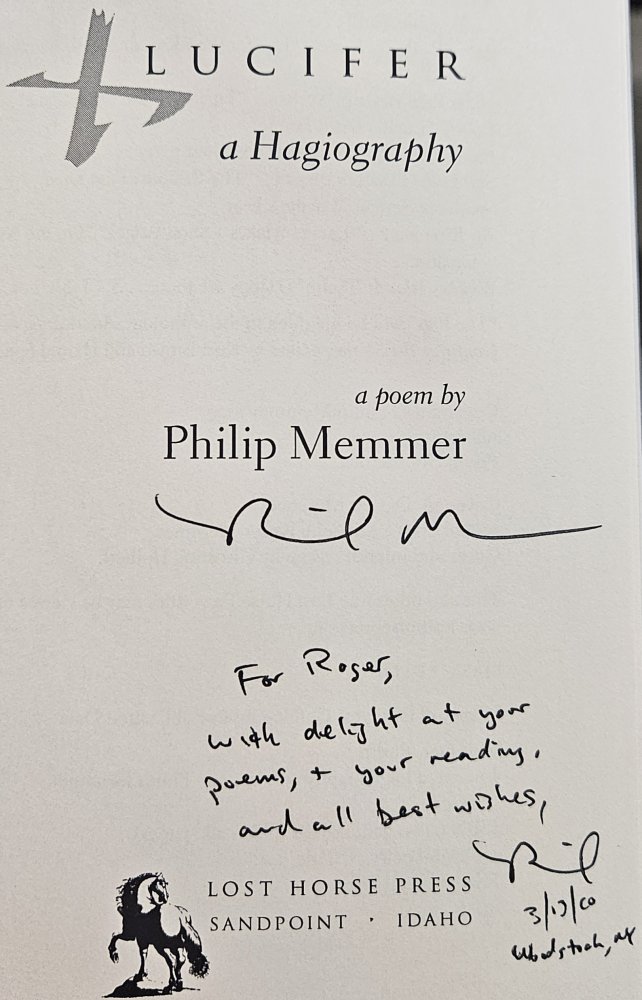 LUCIFER
a Hagiography
a poem by
Philip Memmer
For Roger,
with delight at your
poems, + your reading,
and all best wishes,
Phil
LOST HORSE PRESS
SANDPOINT · IDAHO
Woodstock, NY